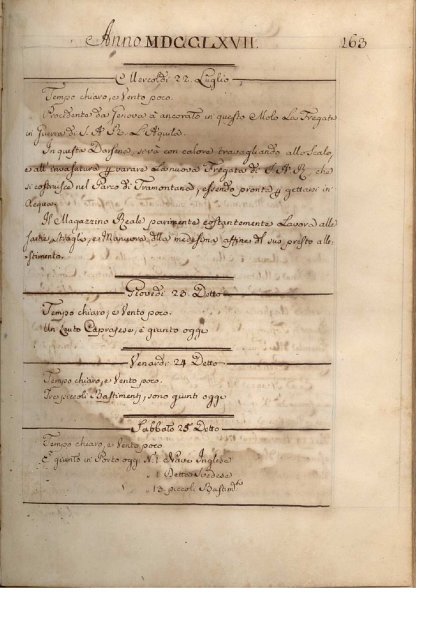 Anno MDCCLXVII.
163
Mercoldi 22. Luglio
Tempo chiaro, e Vento poco.
Procedente da Genova à ancorato in questo Molo La Fregata
in Guerra di S. A. R. L'Aquila.
In questa Darsena, serà con calore travagliando allo Scalo,
e all' invasatura p varare La nuova Fregata di S. A. R., che
si costruisce nel Parco di Tramontana, essendo pronta p gettarsi in
Acqua,
Il Magazzino Reale parimente costantemente Lavora alle
Sarzie, e Manuvra, alla medesima affine del suo presto alle-
stimento.
Giovedi 23. Detto
Tempo chiaro, e Vento poco.
Un Leuto Caprajese, è giunto oggi
Venardi 24 Detto
Tempo chiaro, e Vento poco.
Tre piccoli Bastimenti, sono giunti oggi
Sabbato 25 Detto
Tempo chiaro, e Vento poco
E' giunto in Porto oggi N. 1 Nave Inglese
" 1 Detta Svedese
" 13 piccoli Bastim.ti